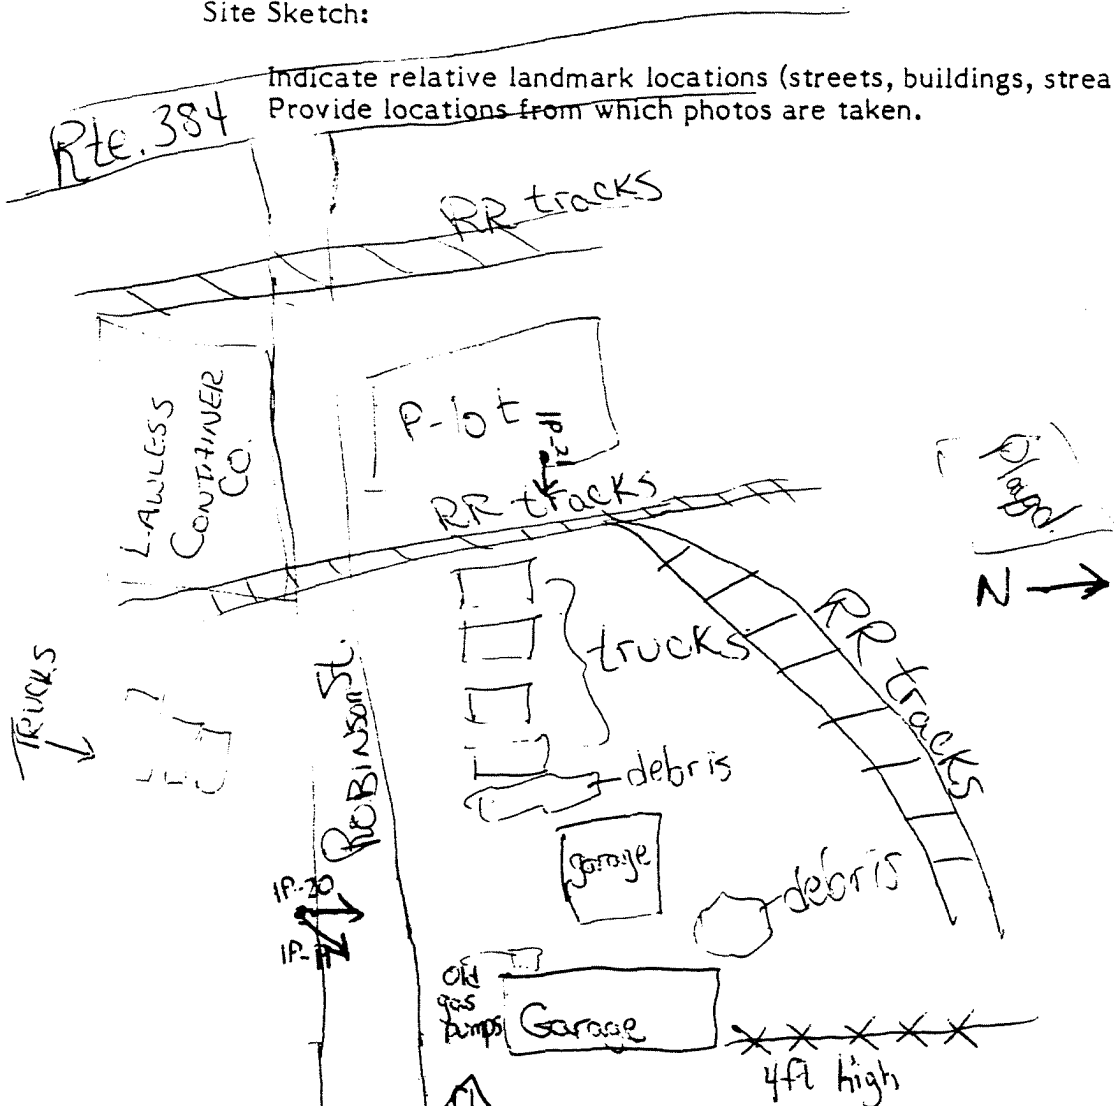 Site Sketch:
Indicate relative landmark locations (streets, buildings, strea
Provide locations from which photos are taken.
Rte. 384
RR tracks
LAWLESS
CONTAINER
CO.
P-lot
IP-21
RR tracks
Playgd.
N
RR tracks
trucks
TRUCKS
ROBINSON St.
debris
garage
debris
IP-20
Old
gas
pumps
Garage
4ft high